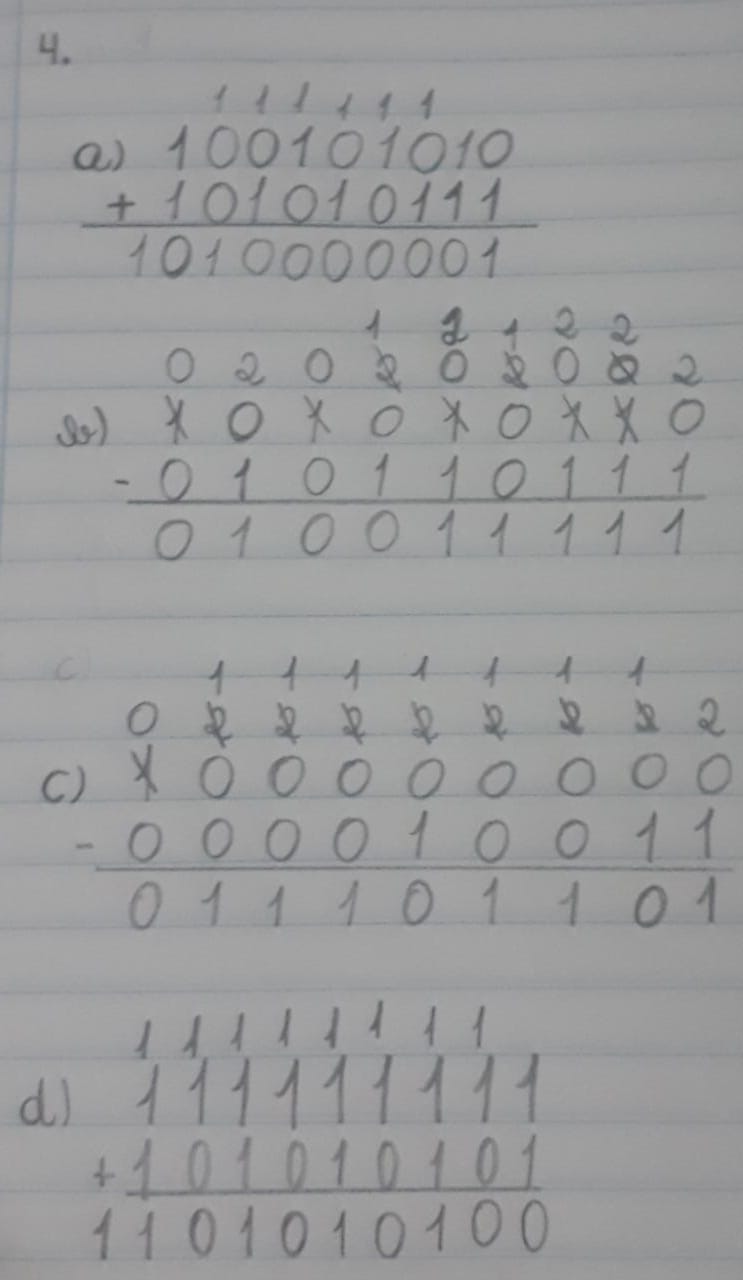 4.
1 1 1 1 1 1
a) 100101010
+ 101010111
1010000001
1 1 1 2 2
0 2 0 2 0 2 0 0 2
b) 1 0 1 0 1 0 1 1 0
- 0 1 0 1 1 0 1 1 1
0 1 0 0 1 1 1 1 1
1 1 1 1 1 1 1
0 2 2 2 2 2 2 2 2
c) 1 0 0 0 0 0 0 0 0
- 0 0 0 0 1 0 0 1 1
0 1 1 1 0 1 1 0 1
1 1 1 1 1 1 1 1
d) 111111111
+ 101010101
1101010100